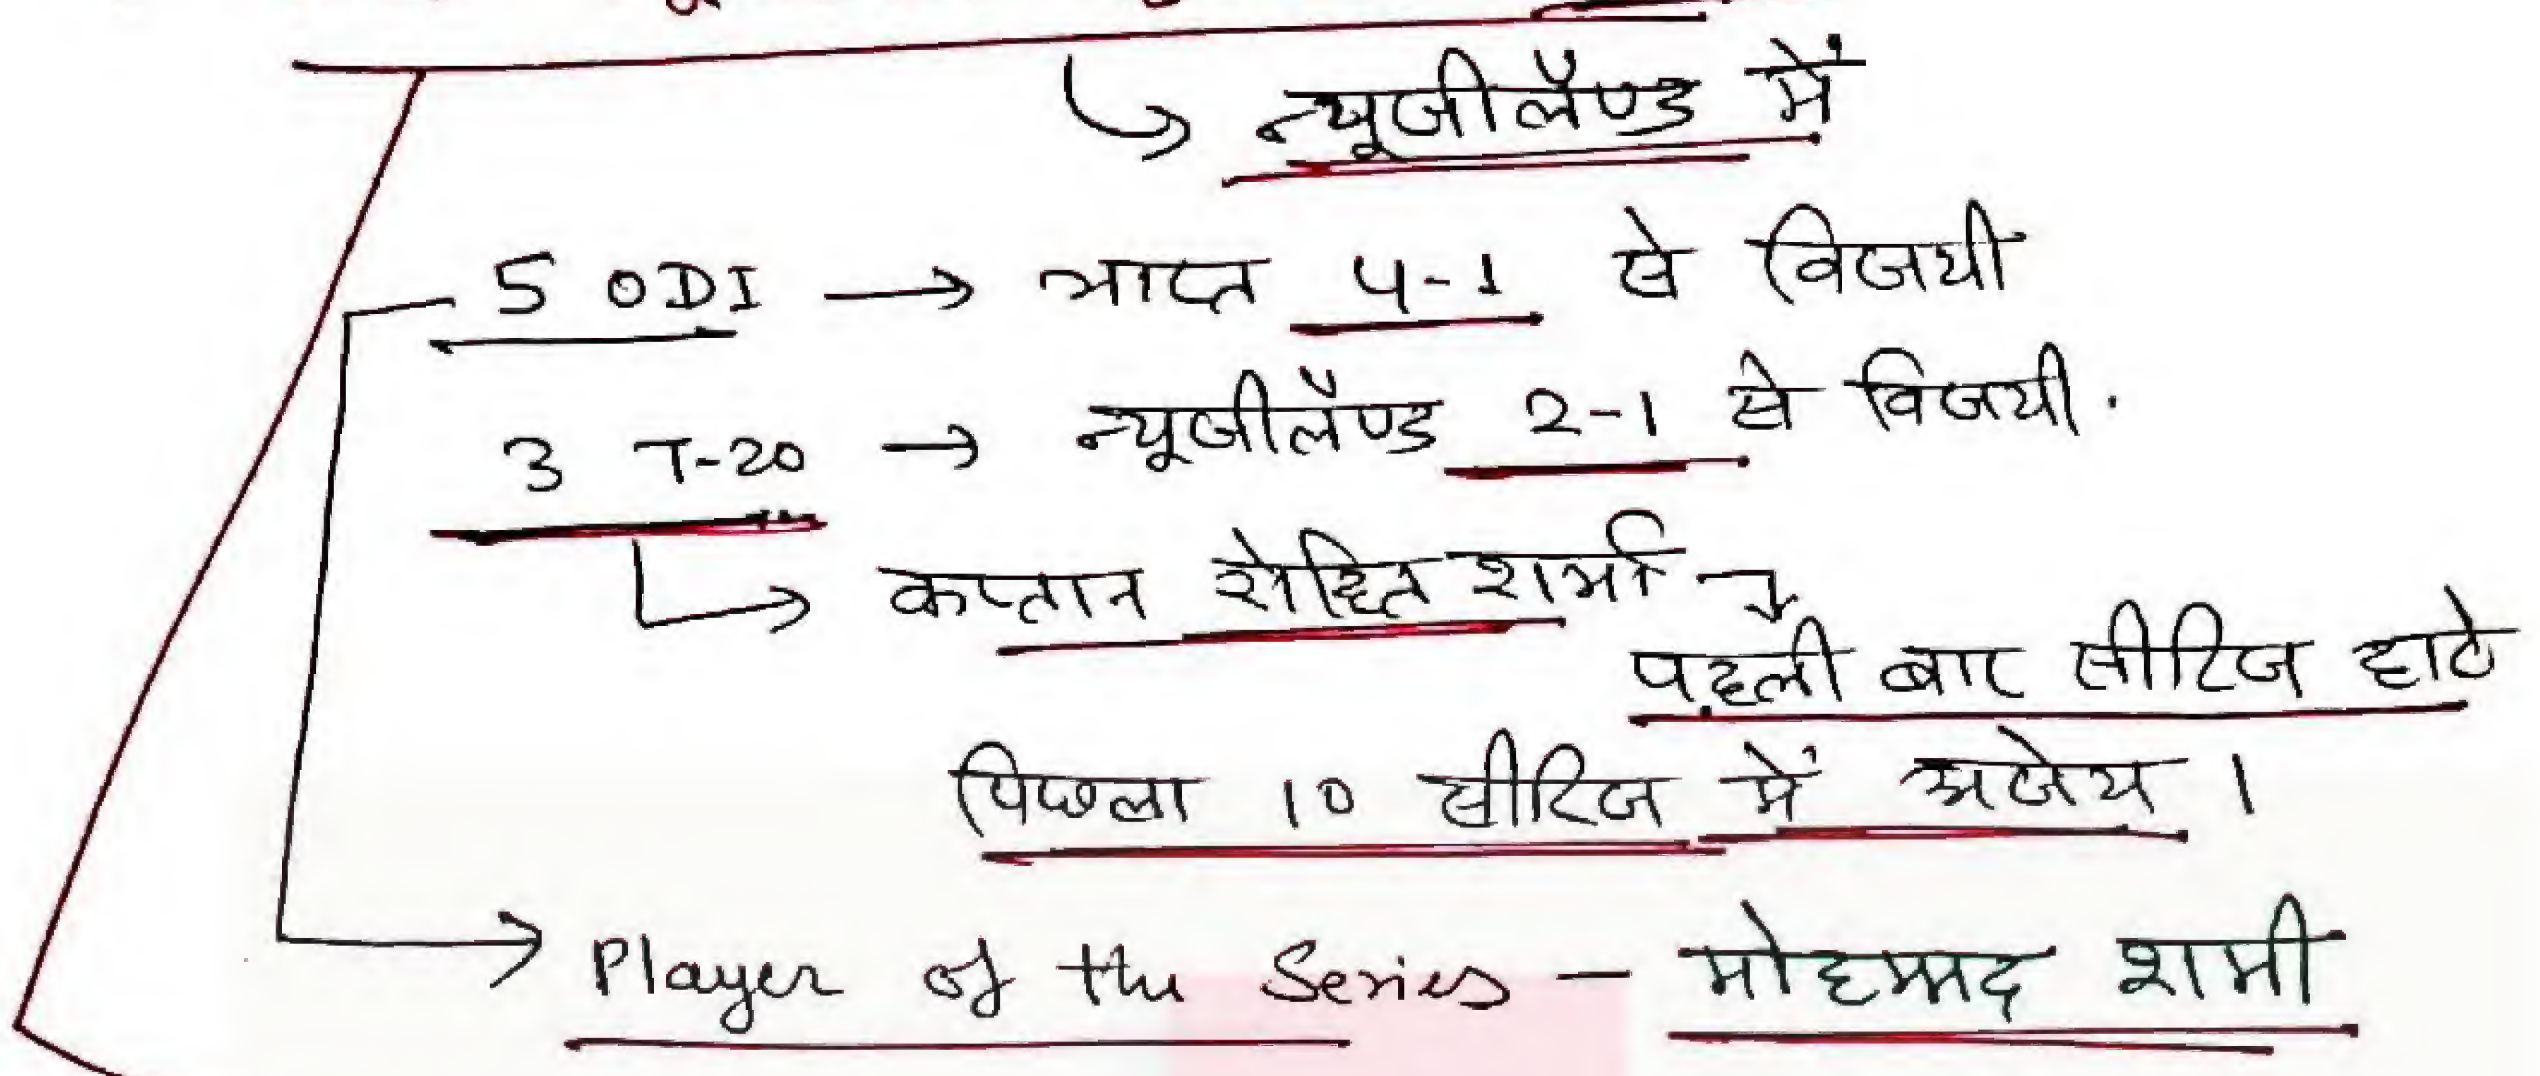 ↳ न्यूजीलैण्ड में
5 ODI → भारत 4-1 से विजयी
3 T-20 → न्यूजीलैण्ड 2-1 से विजयी.
↳ कप्तान रोहित शर्मा →
पहली बार सीरिज हारे
पिछला 10 सीरिज में अजेय।
→ Player of the Series - मोहम्मद शमी